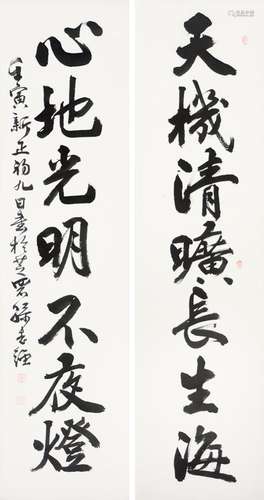 天機清曠長生海
心地光明不夜燈
壬寅新正初九日書於芝罘